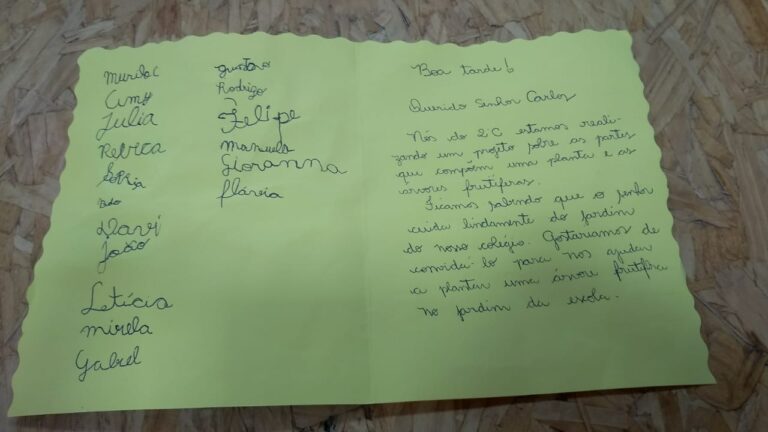 Murilo C
Amy
Julia
Rebeca
Sofia
Davi
João
Letícia
mirela
Gabiel
gustavo
Rodrigo
Felipe
manuela
Giovanna
flávia
Boa tarde!
Querido Senhor Carlos
Nós do 2ºC estamos reali-
zando um projeto sobre as partes
que compõm uma planta e as
árvores frutíferas.
Ficamos sabendo que o senhor
cuida lindamente do jardim
do nosso colégio. Gostaríamos de
convidá-lo para nos ajudar
a plantar uma árvore frutífera
no jardim da escola.